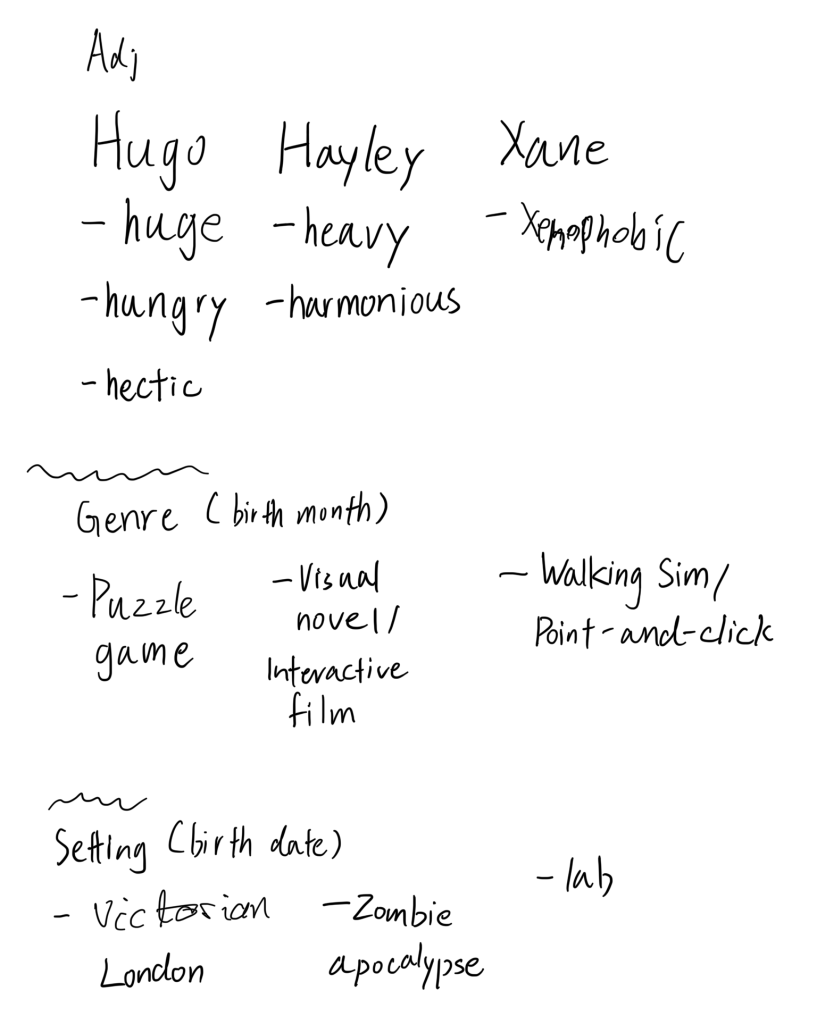 Adj
Hugo Hayley Xane
- huge - heavy - Xenophobic
- hungry - harmonious
- hectic
Genre (birth month)
- Puzzle game
- Visual novel/
Interactive film
- Walking Sim/
Point-and-click
Setting (birth date)
- Victorian London
- Zombie apocalypse
- lab